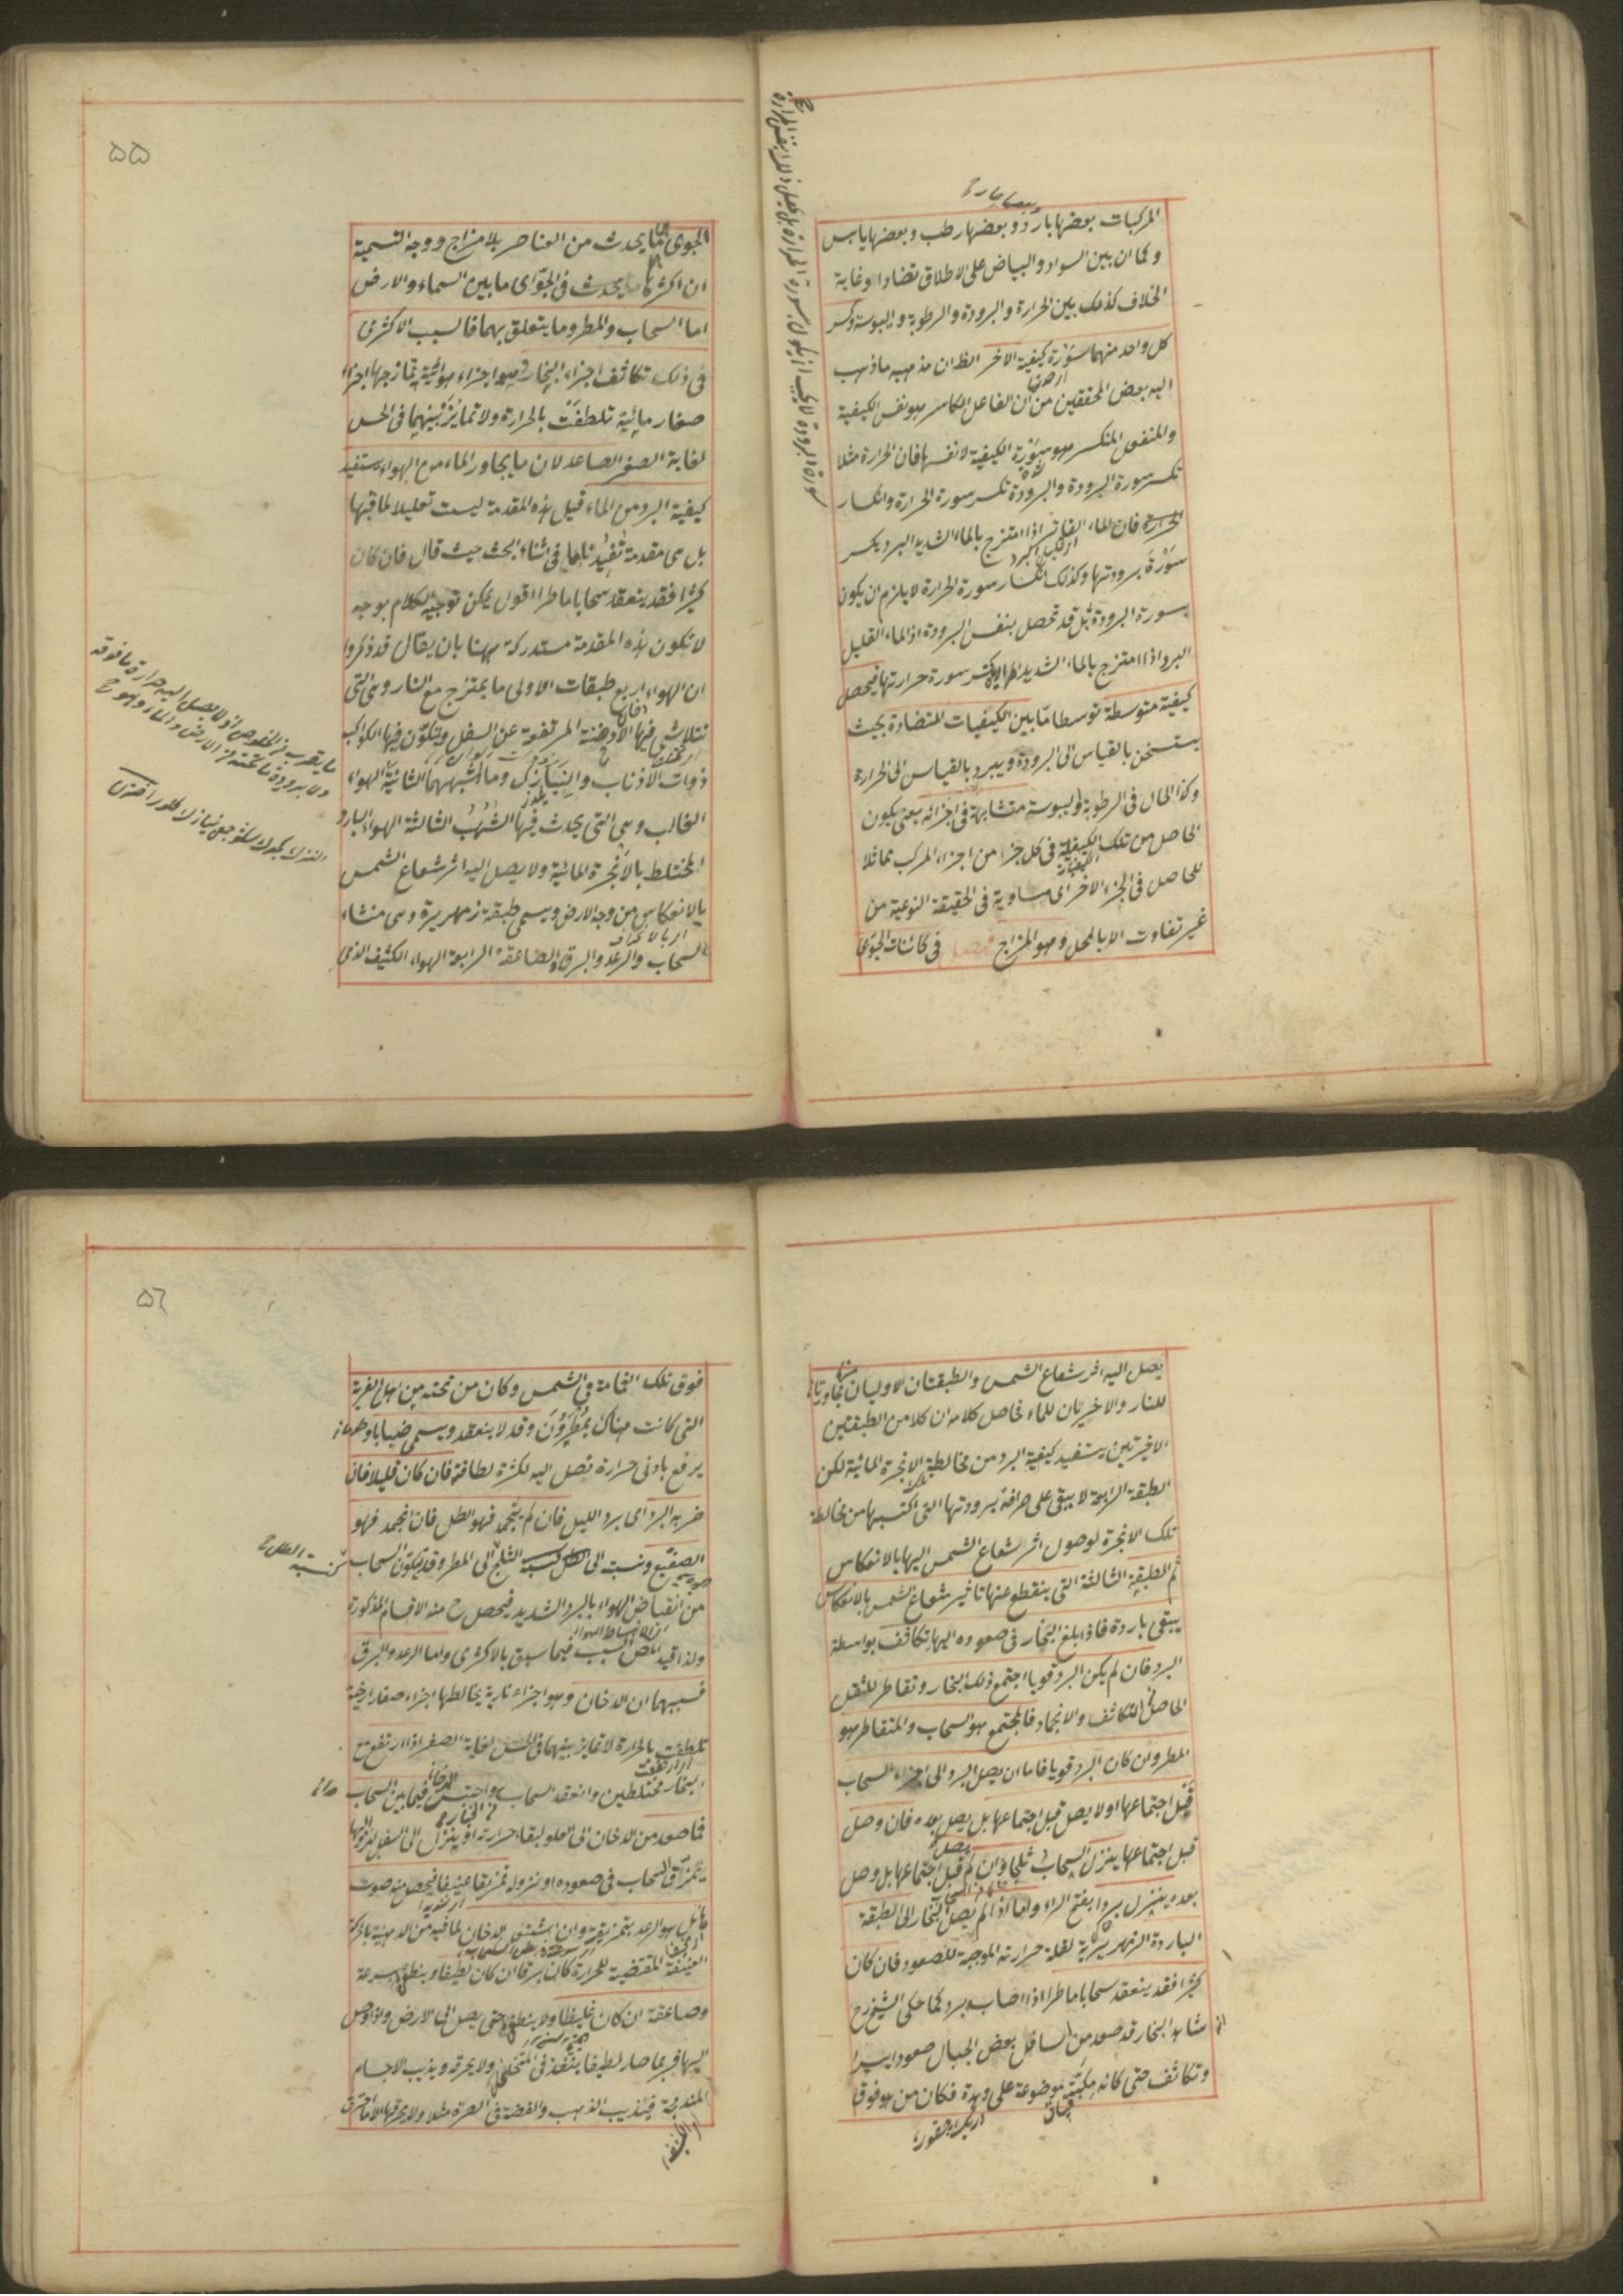 وبعضها حار
المركبات بعضها بارد وبعضها رطب وبعضها يابس
وكما ان بين السواد والبياض على الاطلاق تضادا وغاية
الخلاف كذلك بين الحرارة والبرودة والرطوبة واليبوسة وكسر
كل واحد منهما سورة كيفية الآخر الظ ان مذهبه ما ذهب
اليه بعض المحققين من ان الفاعل الكاسر هو نفس الكيفية
والمنفعل المنكسر هو سورة الكيفية لا نفسها فان الحرارة مثلا
تكسر سورة البرودة والبرودة تكسر سورة الحرارة وانكسار
الحرارة فان الماء الفاتر اذا امتزج بالماء الشديد البرد يكسر
سورة برودتها وكذلك انكسار سورة الحرارة لا يلزم ان يكون
بسورة البرودة بل قد تحصل بنفس البرودة اذ الماء القليل
البرد اذا امتزج بالماء الشديد الحرارة يكسر سورة حرارتها فيحصل
كيفية متوسطة توسطا ما بين الكيفيات المتضادة بحيث
يستسخن بالقياس الى البرودة ويبرد بالقياس الى الحرارة
وكذا الحال في الرطوبة واليبوسة متشابهة في اجزائه يعنى يكون
الحاصل من تلك الكيفية في كل جزء من اجزاء المركب مماثلا
للحاصل في الجزء الآخر اى مساوية في الحقيقة النوعية من
غير تفاوت الا بالمحل وهو المزاج فصل في كائنات الجو اعنى
سورة البرودة لا يجب ان يكون بسورة الحرارة بل يحصل ذلك بنفس الحرارة
٥٥
الجوى ما يحدث من العناصر بلا مزاج ووجه التسمية
ان اكثرها يحدث في الجو اى ما بين السماء والارض
اما السحاب والمطر وما يتعلق بهما فالسبب الاكثرى
في ذلك تكاثف اجزاء البخار وهو اجزاء هوائية تمازجها اجزاء
صغار مائية تلطفت بالحرارة ولا تمايز بينهما في الحس
لغاية الصغر الصاعد لان ما يجاور الماء من الهواء يستفيد
كيفية البرد من الماء قيل هذه المقدمة ليست تعليلا لما قبلها
بل هى مقدمة تفيدنا ما في اثناء البحث حيث قال فان كان
كثيرا فقد ينعقد سحابا ماطرا اقول يمكن توجيه الكلام بوجه
لا تكون هذه المقدمة مستدركة ههنا بان يقال قد ذكروا
ان الهواء اربع طبقات الاولى ما يمتزج مع النار وهى التى
تتلاشى فيها الادخنة المرتفعة عن السفل وتتكون فيها الكواكب
ذوات الاذناب والنيازك وما اشبههما الثانية الهواء
الغالب وهى التى يحدث فيها الشهب الثالثة الهواء البارد
المختلط بالابخرة المائية ولا يصل اليه اثر شعاع الشمس
بالانعكاس من وجه الارض ويسمى طبقة زمهريرة وهى منشاء
السحاب والرعد والبرق والصاعقة الرابعة الهواء الكثيف الذى
يصل اليه اثر شعاع الشمس والطبقتان الاوليان مجاورتان
للنار والاخريان للماء فحاصل كلامه ان كلا من الطبقتين
الاخيرتين يستفيد كيفية البرد من مخالطة الابخرة المائية لكن
الطبقة الرابعة لا يبقى على صرافة برودتها التى اكتسبها من مخالطة
تلك الابخرة لوصول اثر شعاع الشمس اليها بالانعكاس
ثم الطبقة الثالثة التى ينقطع عنها تاثير شعاع الشمس بالانعكاس
يبقى باردة فاذا بلغ البخار في صعوده اليها تكاثف بواسطة
البرد فان لم يكن البرد قويا اجتمع ذلك البخار وتقاطر للثقل
الحاصل من التكاثف والانجماد فالمجتمع هو السحاب والمتقاطر هو
المطر وان كان البرد قويا فاما ان يصل البرد الى اجزاء السحاب
قبل اجتماعها او لا يصل قبل اجتماعها بل يصل بعده فان وصل
قبل اجتماعها ينزل السحاب ثلجا وان لم يصل قبل اجتماعها بل وصل
بعده ينزل بردا بفتح الراء واما اذا لم يصل البخار الى الطبقة
الباردة الزمهريرية لقلة حرارته الموجبة للصعود فان كان
كثيرا فقد ينعقد سحابا ماطرا اذا اصابه برد كما حكى الشيخ رح
انه شاهد البخار قد صعد من اسافل بعض الجبال صعودا يسيرا
وتكاثف حتى كانه مكبة موضوعة على وهدة فكان من هو فوق
٥٦
فوق تلك الغمامة في الشمس وكان من تحته من اهل القرية
التى كانت هناك يمطرون وقد لا ينعقد ويسمى ضبابا
يرتفع بادنى حرارة تصل اليه لكثرة لطافته فان كان قليلا فاذا
ضربه البرد اى برد الليل فان لم يتجمد فهو الطل فان انجمد فهو
الصقيع ونسبته الى الطل كنسبة الثلج الى المطر وقد يتكون السحاب
من انقباض الهواء بالبرد الشديد فيحصل ح منه الاقسام المذكورة
ولذا قيد المص السبب فيما سبق بالاكثرى واما الرعد والبرق
فسببهما ان الدخان وهو اجزاء نارية يخالطها اجزاء صغار ارضية
تلطفت بالحرارة لا تمايز بينهما في الحس لغاية الصغر اذا ارتفع مع
البخار مختلطين وانعقد السحاب واحتبس الدخان فيما بين السحاب
فما صعد من الدخان الى العلو لبقاء حرارته او ينزل الى السفل لزوالها
يمزق السحاب في صعوده او نزوله تمزيقا عنيفا فيحصل منه صوت
هائل هو الرعد بتمزيقه وان اشتعل الدخان لما فيه من الدهنية بالحركة
العنيفة المقتضية للحرارة كان برقا ان كان لطيفا وينطفى بسرعة
وصاعقة ان كان غليظا ولا ينطفى حتى يصل الى الارض واذا وصل
اليها فربما صار لطيفا ينفذ في المتخلخل ولا يحرقه ويذيب الاجسام
المندمجة فيذيب الذهب والفضة في الصرة مثلا ولا يحرقها الا ما احترق